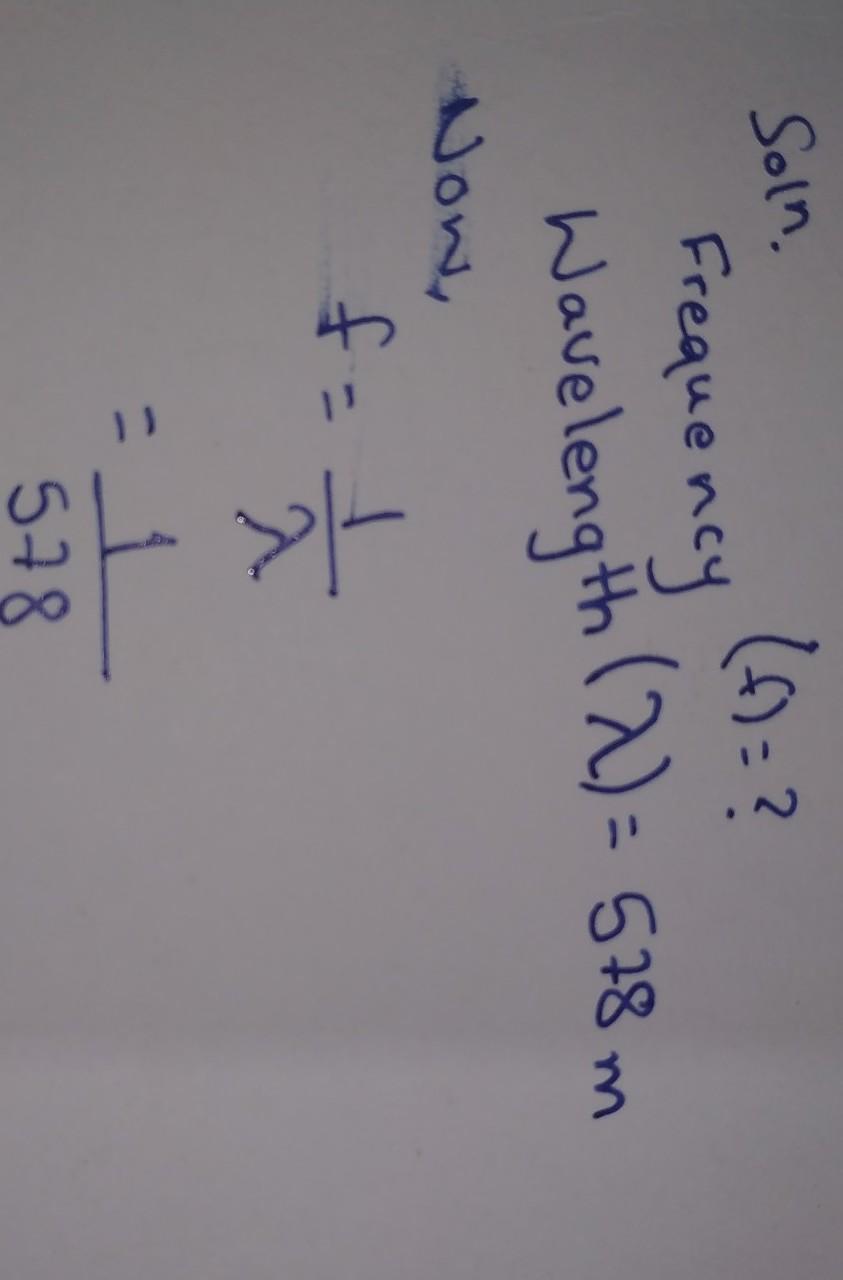 Soln.
Frequency (f) = ?
Wavelength (λ) = 578 m
Now,
f = 1/λ
= 1/578